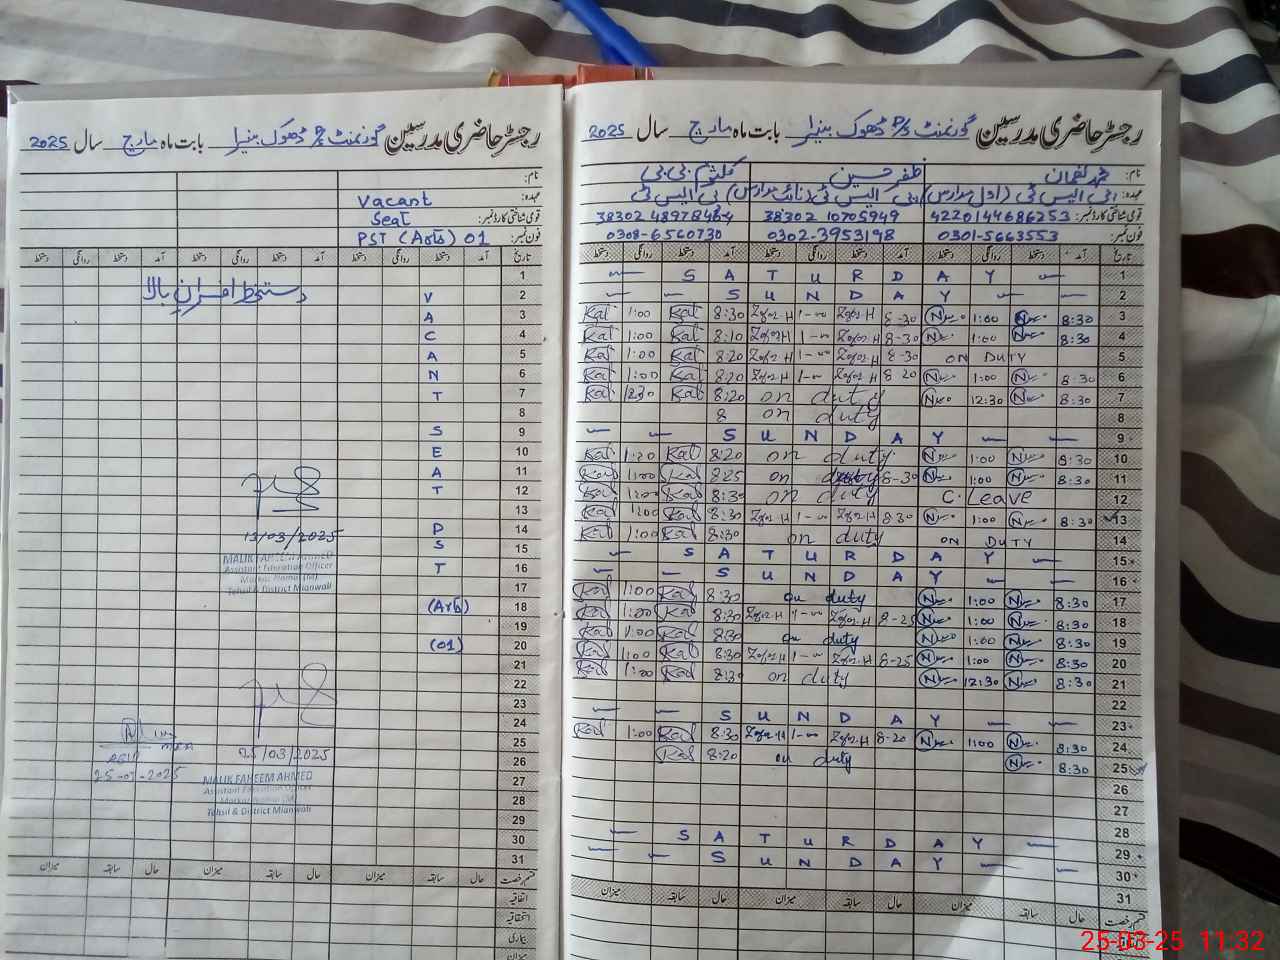 رجسٹر حاضری مدرسین گورنمنٹ P/S ڈھوک بنیرا بابت ماہ مارچ سال 2025
نام:
عہدہ: Vacant
قومی شناختی کارڈ نمبر: Seat
فون نمبر: PST (Arts) 01
تاریخ آمد دستخط روانگی دستخط آمد دستخط روانگی دستخط آمد دستخط روانگی دستخط
1
دستخط افسران بالا
2 V
3 A
4 C
5 A
6 N
7 T
8
9 S
10 E
11 A
12 T
13
14 P
15 S
16 T
17
18 (Arts)
19
20 (01)
21
22
23
24
25
26
27
28
29
30
31
13/03/2025
MALIK FAHEEM AHMED
Assistant Education Officer
Tehsil & District Mianwali
25/03/2025
MALIK FAHEEM AHMED
Assistant Education Officer
Tehsil & District Mianwali
قسم رخصت حال سابقہ میزان حال سابقہ میزان حال سابقہ میزان
اتفاقیہ
استحقاقیہ
بیماری
میزان
رجسٹر حاضری مدرسین گورنمنٹ P/S ڈھوک بنیرا بابت ماہ مارچ سال 2025
نام: محمد لقمان ظفر حسین کلثوم بی بی
عہدہ: پی ایس ٹی
قومی شناختی کارڈ نمبر: 4220144686253 38302 10705949
فون نمبر: 0301-5663553 0302-3953198 0308-6560730
تاریخ آمد دستخط روانگی دستخط آمد دستخط روانگی دستخط آمد دستخط روانگی دستخط
— S A T U R D A Y — 1
— — S U N D A Y — — 2
Kal 1:00 Kal 8:30 Zafar.H 1-00 Zafar.H 8-30 N 1:00 N 8:30 3
Kal 1:00 Kal 8:10 Zafar.H 1-00 Zafar.H 8-30 N 1:00 N 8:30 4
Kal 1:00 Kal 8:20 Zafar.H 1-00 Zafar.H 8-30 ON DUTY 5
Kal 1:00 Kal 8:20 Zafar.H 1-00 Zafar.H 8-20 N 1:00 N 8:30 6
Kal 12:30 Kal 8:20 on duty N 12:30 N 8:30 7
8 on duty 8
— — S U N D A Y — — 9
Kal 1:20 Kal 8:20 on duty N 1:00 N 8:30 10
Kal 1:00 Kal 8:25 on duty 8-30 N 1:00 N 8:30 11
Kal 1:00 Kal 8:30 on duty C. Leave 12
Kal 1:00 Kal 8:30 Zafar.H 1-00 Zafar.H 8-30 N 1:00 N 8:30 13
Kal 1:00 Kal 8:30 on duty ON DUTY 14
— S A T U R D A Y — 15
— — S U N D A Y — — 16
Kal 1:00 Kal 8:30 on duty N 1:00 N 8:30 17
Kal 1:00 Kal 8:30 Zafar.H 1-00 Zafar.H 8-25 N 1:00 N 8:30 18
Kal 1:00 Kal 8:30 on duty N 1:00 N 8:30 19
Kal 1:00 Kal 8:30 Zafar.H 1-00 Zafar.H 8-25 N 1:00 N 8:30 20
Kal 1:00 Kal 8:30 on duty N 12:30 N 8:30 21
22
— — S U N D A Y — — 23
Kal 1:00 Kal 8:30 Zafar.H 1-00 Zafar.H 8-20 N 1:00 N 8:30 24
Kal 8:20 on duty N 8:30 25
26
27
28
— S A T U R D A Y — 29
— — S U N D A Y — — 30
31
قسم رخصت حال سابقہ میزان حال سابقہ میزان حال سابقہ میزان
اتفاقیہ
25-03-25 11:32